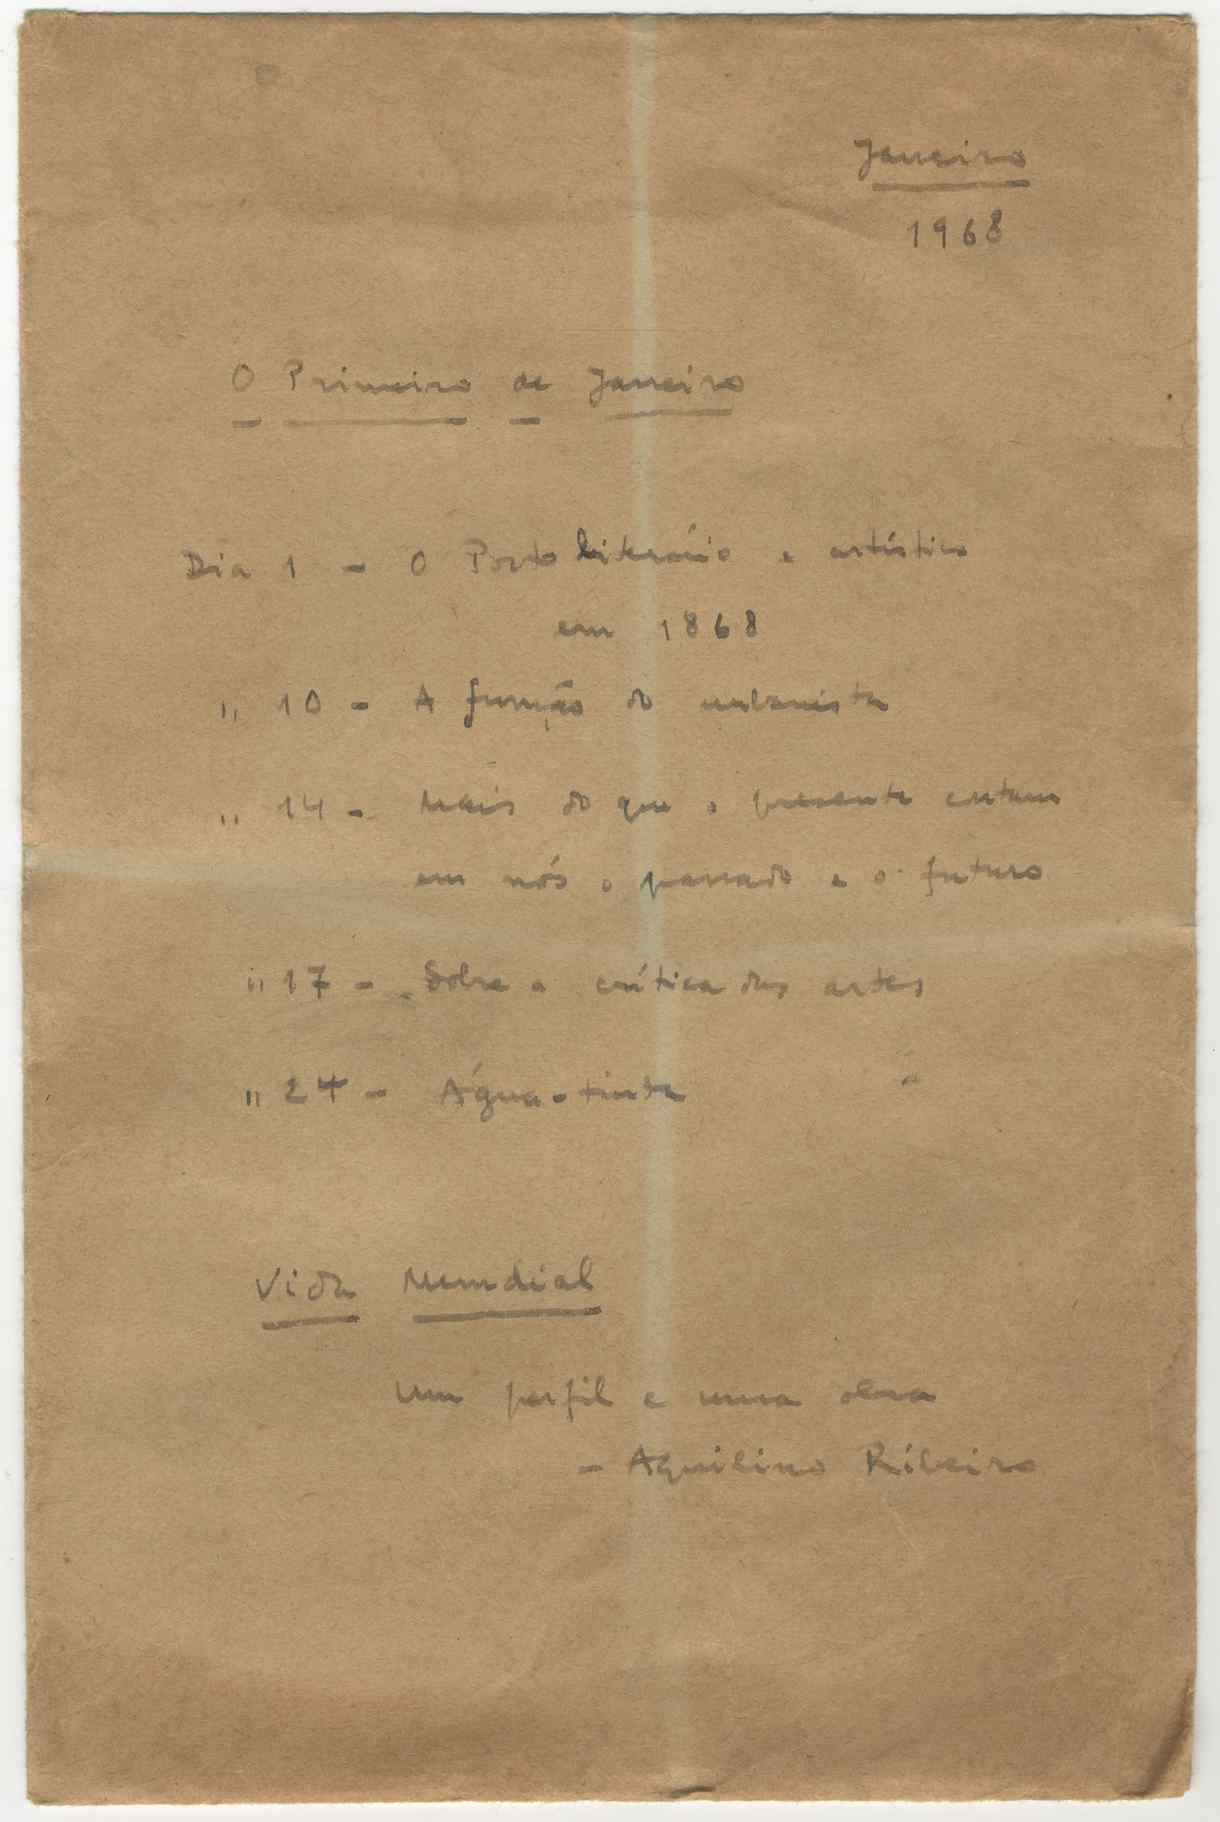 Janeiro
1968
O Primeiro de Janeiro
Dia 1 - O Porto literário e artístico
em 1868
" 10 - A função do urbanista
" 14 - Mais do que o presente contam
em nós o passado e o futuro
" 17 - Sobre a crítica das artes
" 24 - Água-tinta
Vida Mundial
Um perfil e uma obra
- Aquilino Ribeiro